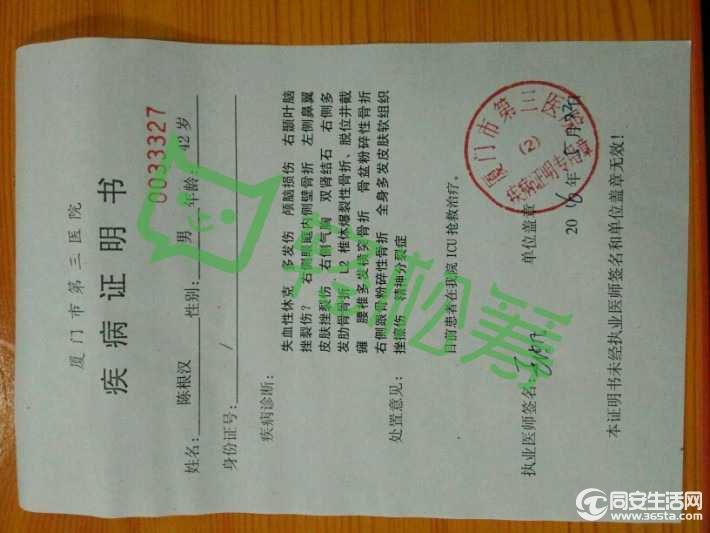 厦门市第三医院
疾病证明书
0033327
姓名：陈根汉 性别：男 年龄：42岁
身份证号：/
疾病诊断：
失血性休克 多发伤 颅脑损伤 右颞叶脑
挫裂伤？ 右侧眼眶内侧壁骨折 左侧鼻翼
皮肤挫裂伤、右侧气胸 双肾结石 右侧多
发肋骨骨折 L2椎体爆裂性骨折、脱位并截
瘫 腰椎多发横突骨折 骨盆粉碎性骨折
右侧跟骨粉碎性骨折 全身多发皮肤软组织
挫擦伤 精神分裂症
处置意见：
目前患者在我院ICU抢救治疗。
执业医师签名
单位盖章
厦门市第三医
(2)
疾病证明专用章
2016年5月
本证明书未经执业医师签名和单位盖章无效！
同安生活网
www.365ta.com